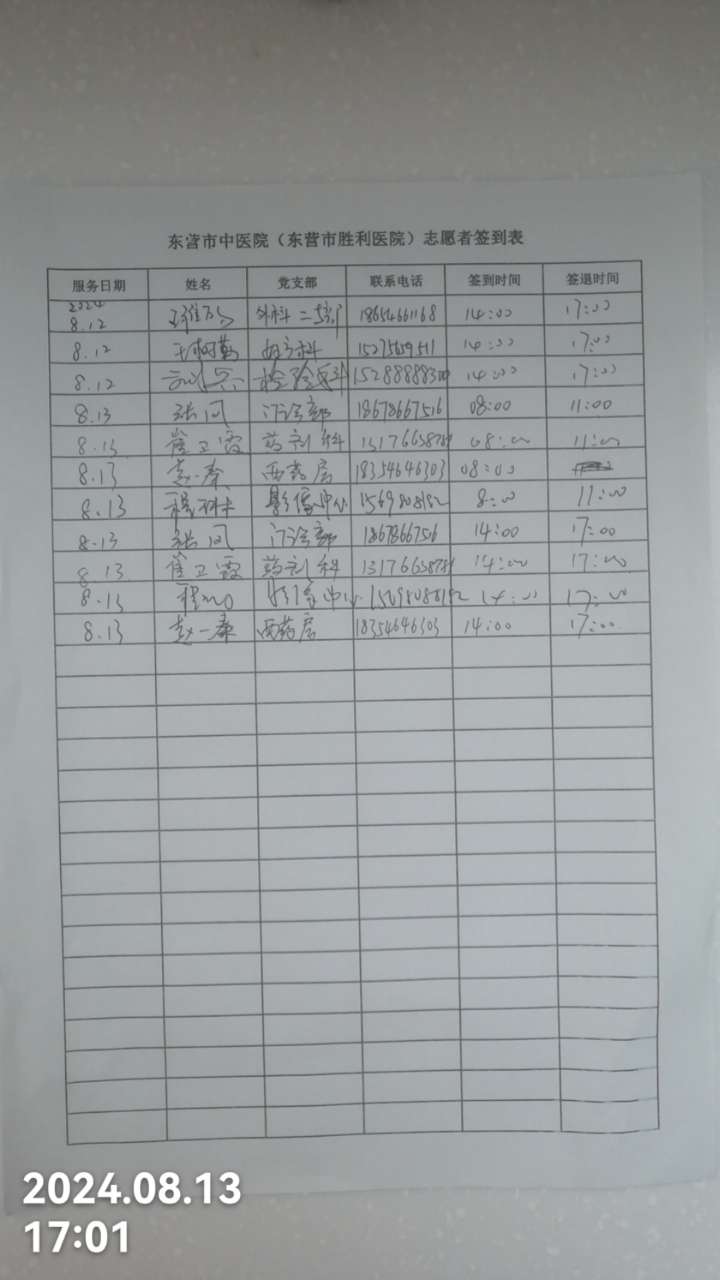 东营市中医院（东营市胜利医院）志愿者签到表
服务日期 姓名 党支部 联系电话 签到时间 签退时间
2024 8.12 外科二支部 18654661168 14:00 17:00
8.12 妇产科 15275659511 14:00 17:00
8.12 检验科 14:00 17:00
8.13 张凤 门诊部 18678667516 08:00 11:00
8.13 崔卫霞 药剂科 08:00 11:00
8.13 赵一秦 西药房 18354646303 08:00
8.13 影像中心 15698088192 8:00 11:00
8.13 张凤 门诊部 18678667516 14:00 17:00
8.13 崔卫霞 药剂科 14:00 17:00
8.13 影像中心 15698088192 14:00 17:00
8.13 赵一秦 西药房 18354646303 14:00 17:00
2024.08.13
17:01